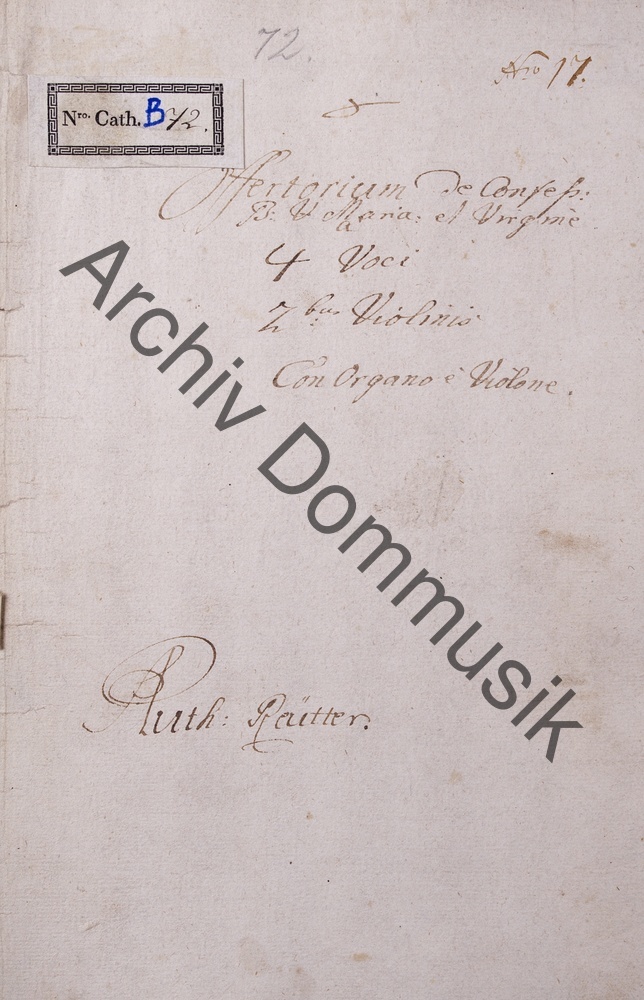 72.
Nro 17.
Nro. Cath. B 72.
Offertorium De Confess:
B: V Maria: et Virgine
a
4 Voci
2bus Violinis
Con Organo è Violone.
Auth: Räütter.
Archiv Dommusik